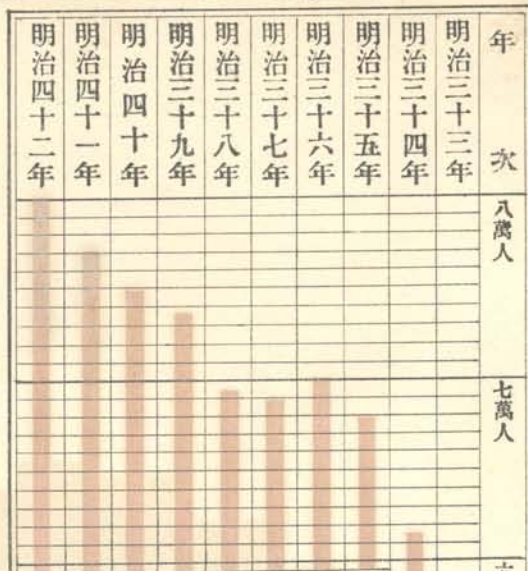 年次
明治三十三年
明治三十四年
明治三十五年
明治三十六年
明治三十七年
明治三十八年
明治三十九年
明治四十年
明治四十一年
明治四十二年
八萬人
七萬人